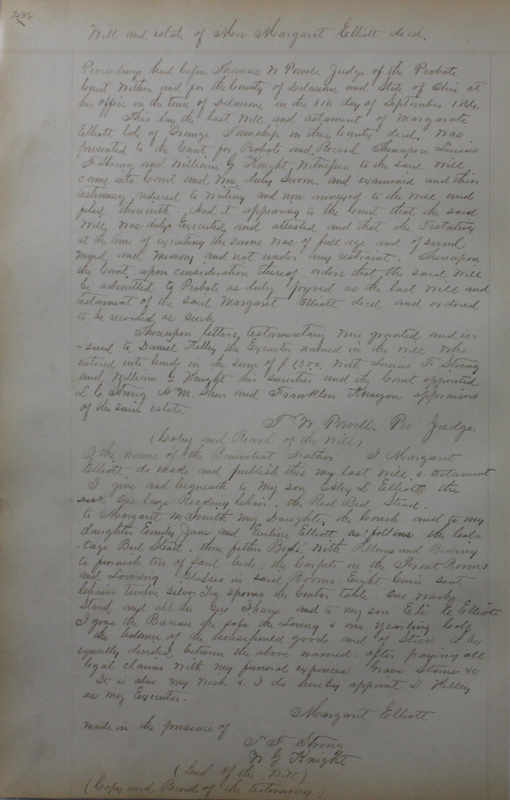 Will and estate of Mrs Margaret Elliott decd.
Proceedings had before Thomas W Powell Judge of the Probate
Court within and for the County of Delaware and State of Ohio at
his office in the town of Delaware on the day of September
This day the last Will and testament of Margaret
Elliott late of Orange Township in this County decd. was
presented to the Court for Probate and Record Thereupon Lucius
F Strong and William G Knight Witnesses to the said Will
came into Court and was duly Sworn and examined and their
testimony reduced to writing and now annexed to the will and
filed therewith. And it appearing to the Court that the said
Will was duly executed and attested and that the Testatrix
at the time of executing the same was of full age and of sound
mind and memory and not under any restraint. Thereupon
the Court upon consideration thereof orders that the said Will
be admitted to Probate as duly proved as the last will and
testament of the said Margaret Elliott decd and ordered
to be recorded as such
Thereupon letters testamentary were granted and is-
-sued to Daniel Kelley the Executor named in the will who
entered into bonds in the sum of $1500. With Lucius F. Strong
and William G Knight his Sureties and the Court appointed
L C Strong and Franklin appraisers
of the said estate
T. W. Powell. Pro Judge.
(Copy and Record of the Will)
I the name of the Benevolent Father I Margaret
Elliott do made and publish this my last Will & testament
I give and bequeath to my son L Elliott the
one large Rocking Chair, the Red Bed Stead.
to Margaret M my Daughter the Couch and to my
daughters Emily Jane and Elliott as follows the Cot-
tage Bed Stead. three feather Beds with Pillows and Bedding
to furnish two of said beds. the Carpets in the Front Rooms
and Looking Glasses in said Rooms. Eight Cain seat
Chairs twelve Silver Tea spoons the Center table. One wash
Stand and all the and to my son Eli Elliott
I give the Bureau the sofa the & one yearling Calf
the balance of the household goods and of Stock to be
equally divided between the above named. after paying all
legal claims with my funeral expences Grave Stones &c
It is also my wish & I do hereby appoint D Kelley
as my Executor.
Margaret Elliott
made in the presence of
L F Strong
W G Knight
(End of the Will)
(Copy and Record of the testimony)